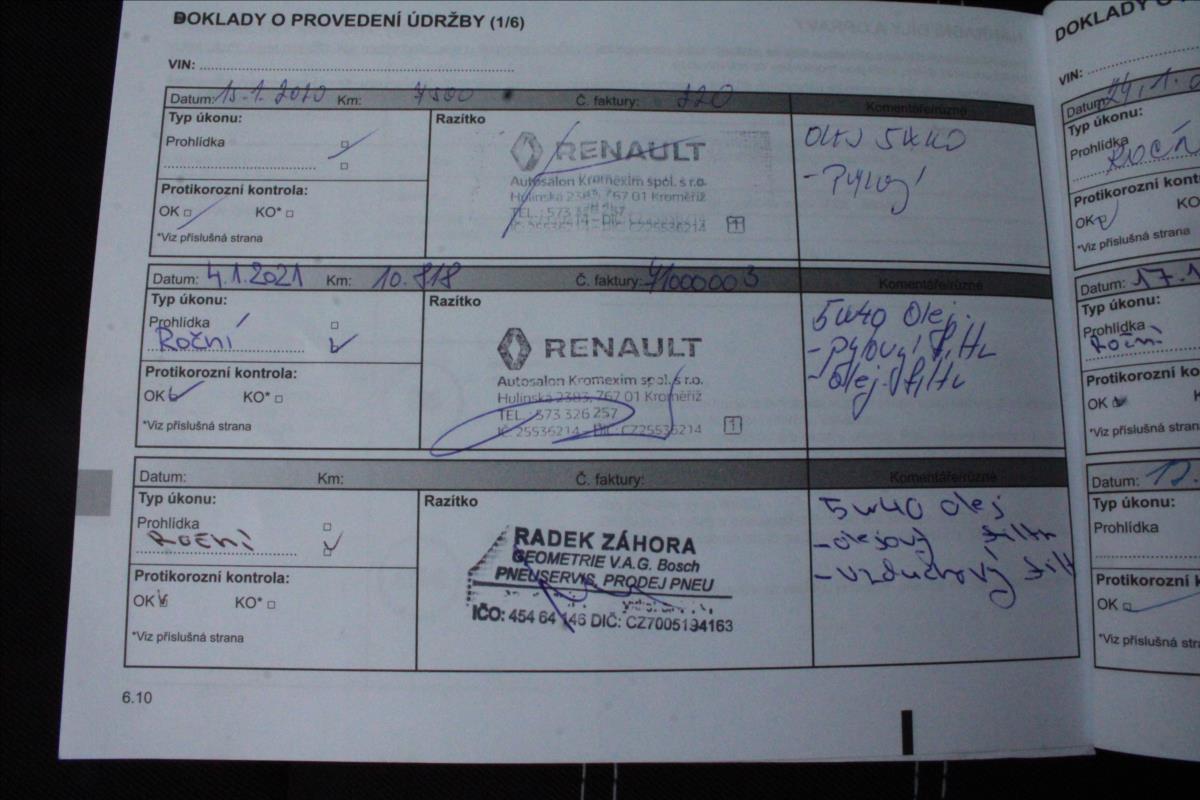 DOKLADY O PROVEDENÍ ÚDRŽBY (1/6)
VIN:
Datum: 15.1.2020 Km: 7500 Č. faktury: 220 Komentáře/různé
Typ úkonu:
Prohlídka
Protikorozní kontrola:
OK KO*
*Viz příslušná strana
Razítko
RENAULT
Autosalon Kromexim spol. s r.o.
Hulínská 2383, 767 01 Kroměříž
TEL.: 573 326 257
IČ: 25536214 - DIČ: CZ25536214
1
Olej 5W40
- Pylový
Datum: 4.1.2021 Km: 10.818 Č. faktury: 41000003 Komentáře/různé
Typ úkonu:
Prohlídka
Roční
Protikorozní kontrola:
OK KO*
*Viz příslušná strana
Razítko
RENAULT
Autosalon Kromexim spol. s r.o.
Hulínská 2383, 767 01 Kroměříž
TEL.: 573 326 257
IČ: 25536214 - DIČ: CZ25536214
1
5W40 Olej.
- Pylový filtr
- Olej. filtr
Datum: Km: Č. faktury: Komentáře/různé
Typ úkonu:
Prohlídka
Roční
Protikorozní kontrola:
OK KO*
*Viz příslušná strana
Razítko
RADEK ZÁHORA
GEOMETRIE V.A.G. Bosch
PNEUSERVIS, PRODEJ PNEU
IČO: 454 64 146 DIČ: CZ7005194163
5W40 olej
- olejový filtr
- vzduchový filt
6.10
DOKLADY O
VIN:
Datum: 24.1.
Typ úkonu:
Prohlídka
Ročn
Protikorozní kontr
OK KO
*Viz příslušná strana
Datum: 17.1
Typ úkonu:
Prohlídka
Roční
Protikorozní ko
OK
*Viz příslušná stran
Datum:
Typ úkonu:
Prohlídka
Protikorozní k
OK
*Viz příslušná stra